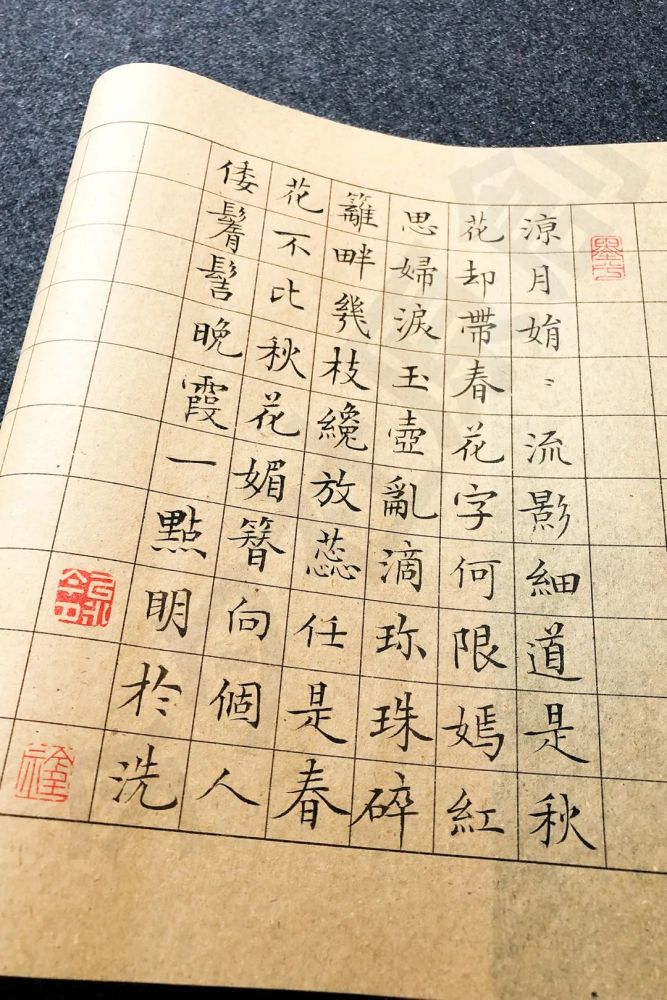 涼月娟〻流影細道是秋
花却帶春花字何限嫣紅
思婦淚玉壺亂滴珎珠碎
籬畔幾枝纔放蕊任是春
花不比秋花媚簪向個人
倭鬌髻晚霞一點明於洗